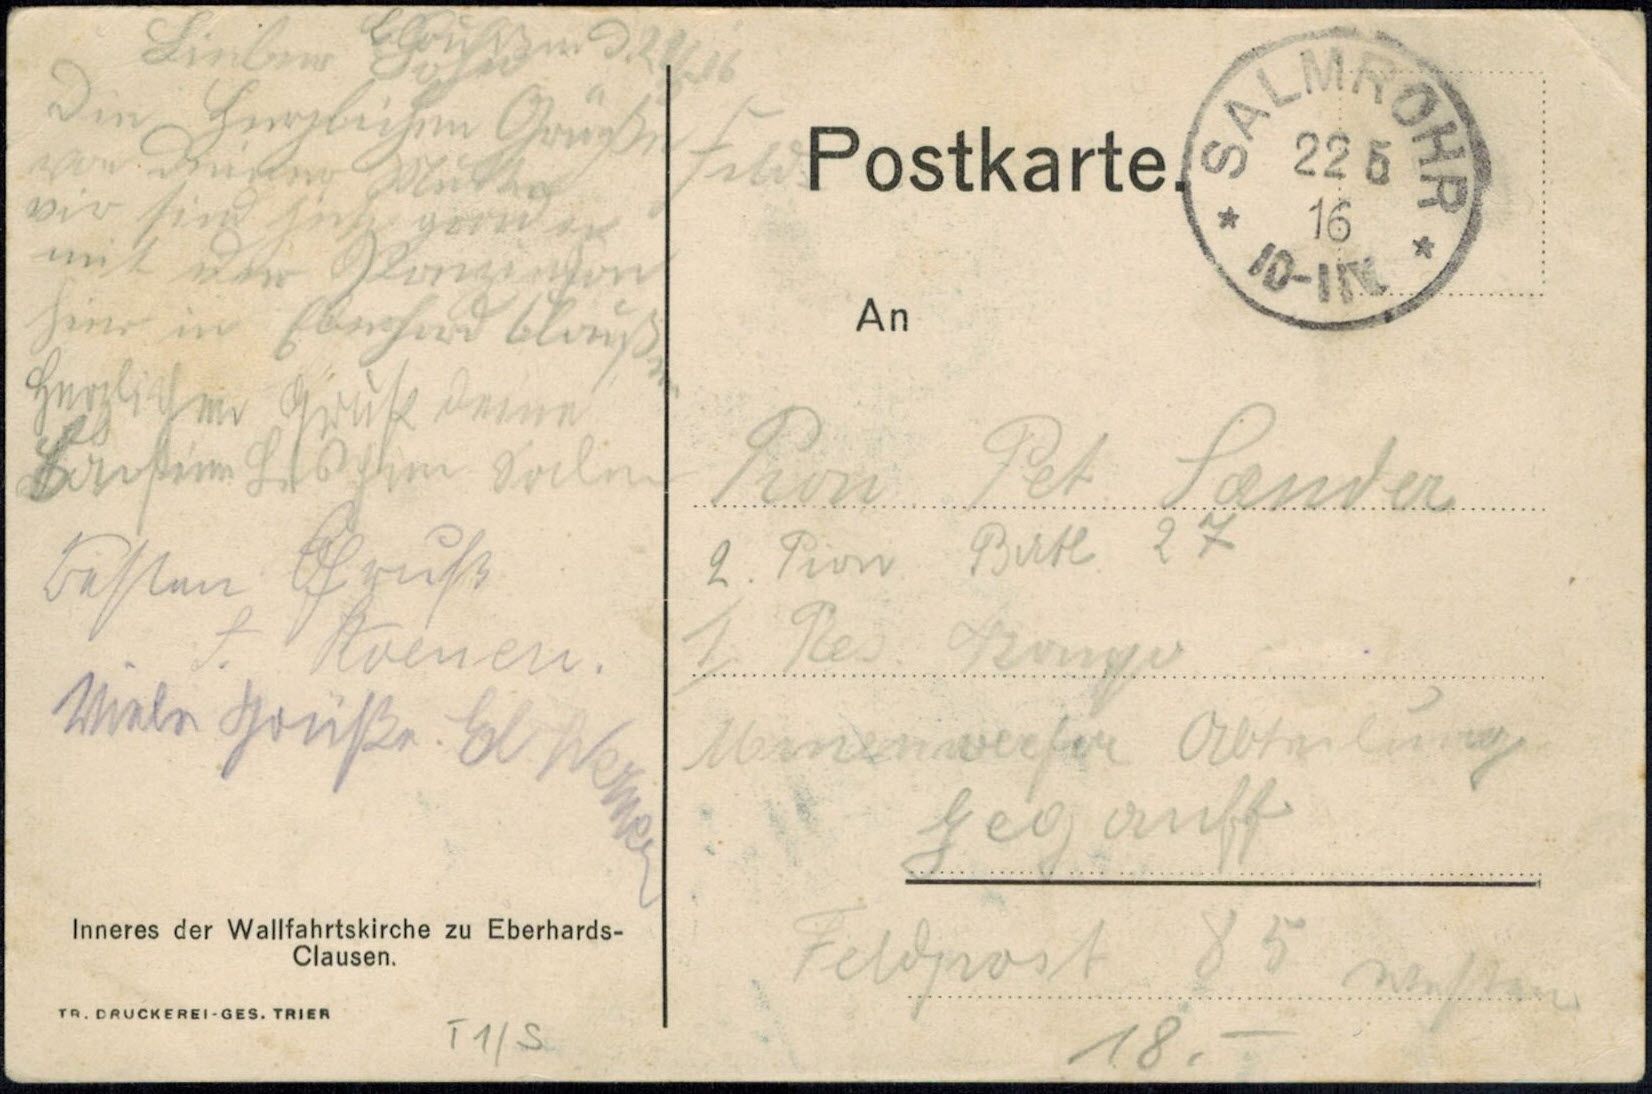 Lieber Sohn
Die Herzlichen Grüße
von deiner Mutter
wir sind hier
mit der
hier in Eberhard Clauß
Herzlichen Gruß deine
Besten Gruß
F. Koenen.
Viele Grüße. El. Werner
Inneres der Wallfahrtskirche zu Eberhards-
Clausen.
TR. DRUCKEREI-GES. TRIER
T 1/S
Feld
Postkarte.
SALMROHR
22 5
16
* 10-11 *
An
Pion Pet Sander
2. Pion Batl. 27
1 Res
Minenwerfer Abteilung
Feldpost 85 Westen
18.-